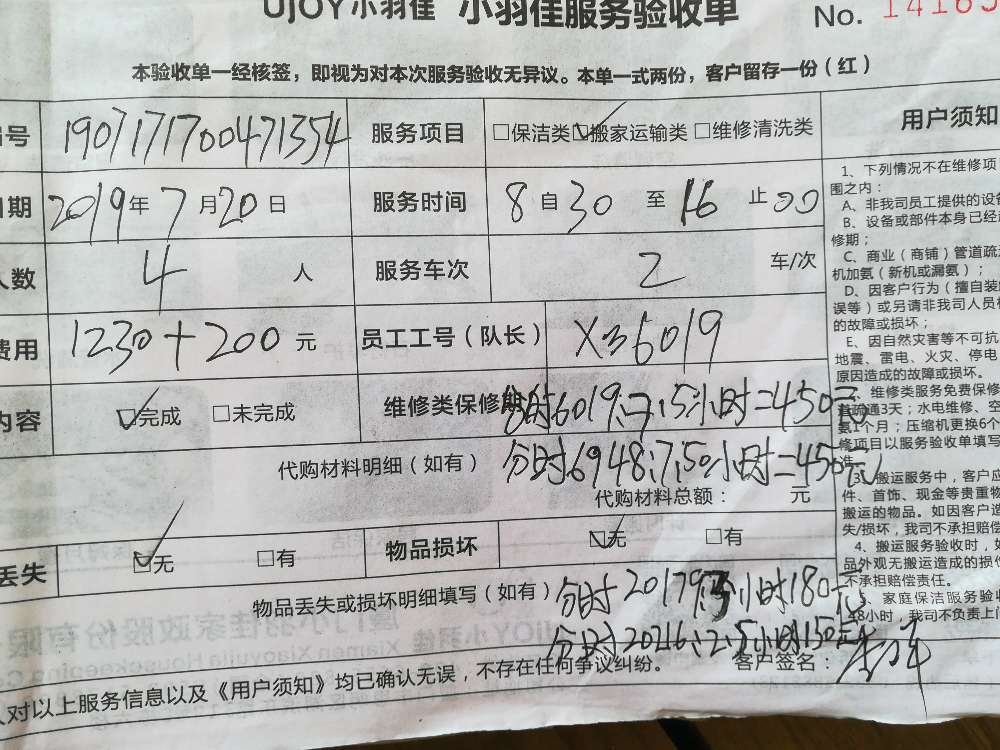 UJOY小羽佳 小羽佳服务验收单 No. 14165
本验收单一经核签，即视为对本次服务验收无异议。本单一式两份，客户留存一份（红）
编号 190717170047​1354 服务项目 □保洁类 ☑搬家运输类 □维修清洗类
日期 2019年7月20日 服务时间 8自30至16止00
人数 4人 服务车次 2 车/次
费用 1230+200元 员工工号（队长） X36019
内容 ☑完成 □未完成 维修类保修期
分时6019:7.5小时=450元
代购材料明细（如有） 分时6948:7.50小时=450元
代购材料总额： 元
丢失 ☑无 □有 物品损坏 ☑无 □有
物品丢失或损坏明细填写（如有） 分时20179:3小时180元
分时20216:2.5小时150元
客户签名：
人对以上服务信息以及《用户须知》均已确认无误，不存在任何争议纠纷。
用户须知
1、下列情况不在维修项
围之内：
A、非我司员工提供的设备
B、设备或部件本身已经
修期；
C、商业（商铺）管道疏
机加氨（新机或漏氨）；
D、因客户行为（擅自装
误等）或另请非我司人员
的故障或损坏；
E、因自然灾害等不可抗
地震、雷电、火灾、停电
原因造成的故障或损坏。
、维修类服务免费保修
疏通3天；水电维修、空
氨1个月；压缩机更换6个
修项目以服务验收单填写
准
3、搬运服务中，客户应
件、首饰、现金等贵重物
搬运的物品。如因客户造
失/损坏，我司不承担赔偿
4、搬运服务验收时，如
品外观无搬运造成的损
不承担赔偿责任。
5、家庭保洁服务验收
48小时，我司不负责上